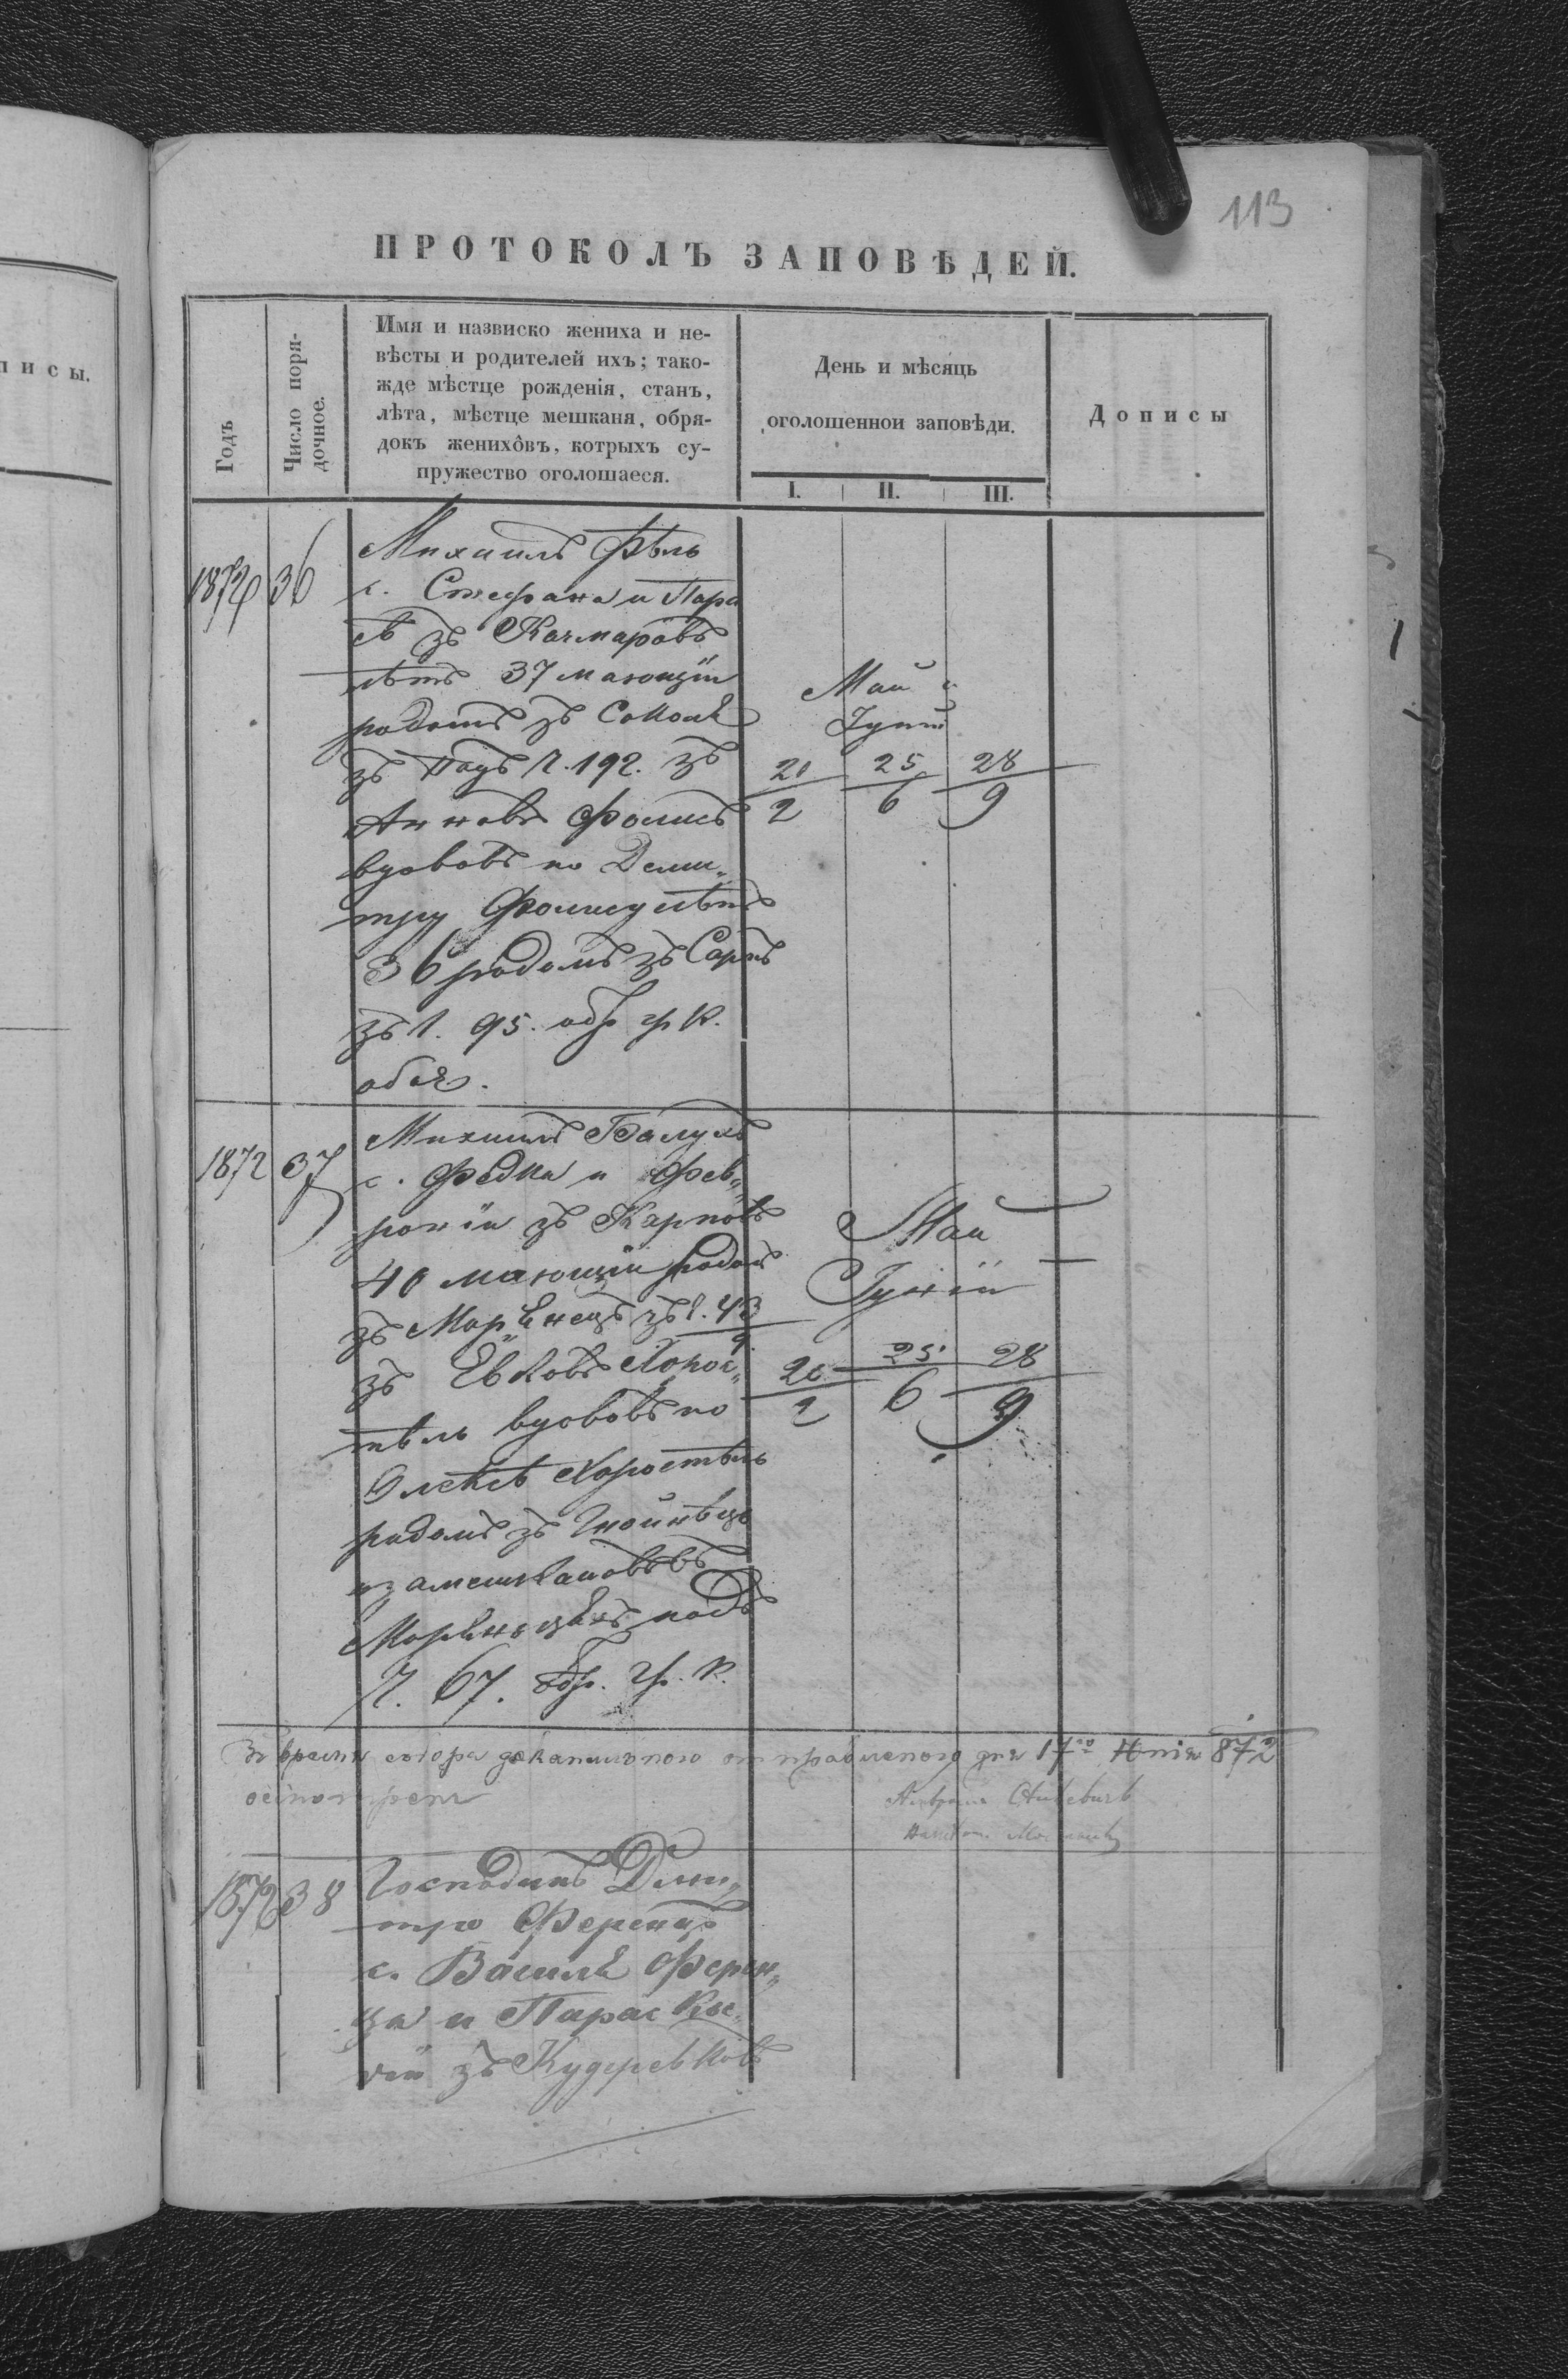 113
ПРОТОКОЛЪ ЗАПОВѢДЕЙ.
п и с ы.
Годъ
Число поря-
дочное.
Имя и назвиско жениха и не-
вѣсты и родителей ихъ; тако-
жде мѣстце рожденія, станъ,
лѣта, мѣстце мешканя, обря-
докъ женихôвъ, котрыхъ су-
пружество оголошаеся.
День и мѣсяць
оголошеннои заповѣди.
I. II. III.
Дописы
1872 36
Михаилъ Фѣль
с. Стефана и Пара
съ Качмаровъ
лѣтъ 37 маючіи
родомъ зъ
зъ подъ ч. 192. зъ
Анновъ Фолисъ
вдововъ по Деми„
тру Фолису лѣтъ
36 родомъ зъ
зъ ч. 95. обр гр к.
обое.
Маи и
Іуній
20 25 28
2 6 9
1872 37
Михаилъ Балухъ
с. Федка и Фев„
роніи зъ Карповъ
40 маючіи родом
зъ Морѣнецъ зъ ч. 43
9
зъ Евковъ Хорос„
тѣль вдововъ по
Олексѣ Хоростѣль
родомъ зъ Гнойнѣцъ
Морѣнцяхъ подъ
ч. 67. обр. гр. к.
Маи
Іуніи
20 25 28
2 6 9
Въ времени собора деканального отправленого дня 17го 872
1872 38
Господинъ Дми„
тро Ференцъ
с. Василя Ферен„
ца и Параске„
віи зъ Кудеревковъ